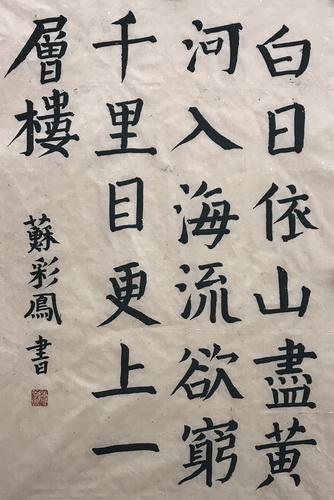 白日依山盡黃
河入海流欲窮
千里目更上一
層樓
蘇彩鳳書